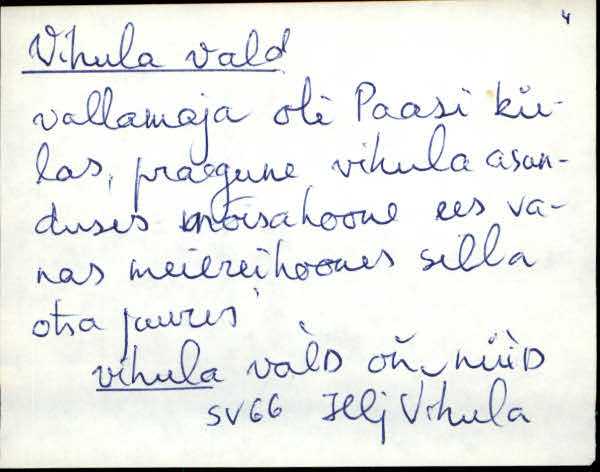 4
Vihula vald
vallamaja oli Paasi kü-
las, praegune vihula asun-
duses mõisahoone ees va-
nas meiereihoones silla
otsa juures
vihula vàlD oň nüìD
SV66 Ilj Vihula